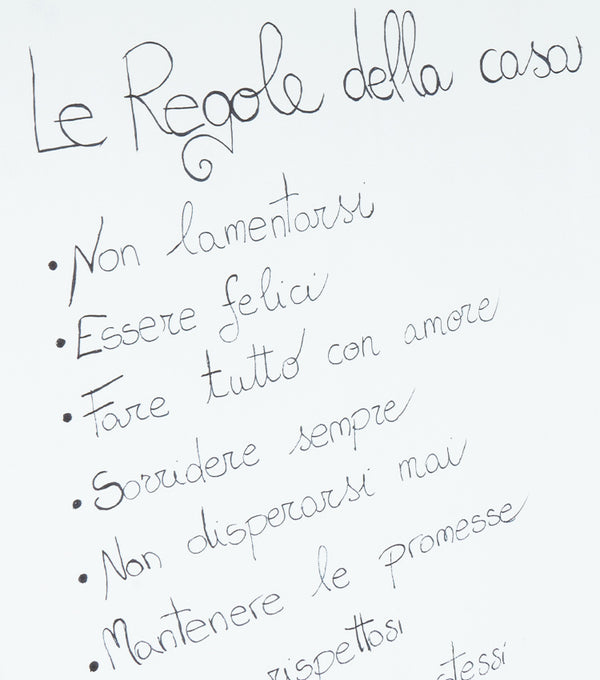 Le Regole della casa
• Non lamentarsi
• Essere felici
• Fare tutto con amore
• Sorridere sempre
• Non disperarsi mai
• Mantenere le promesse
rispettosi
stessi